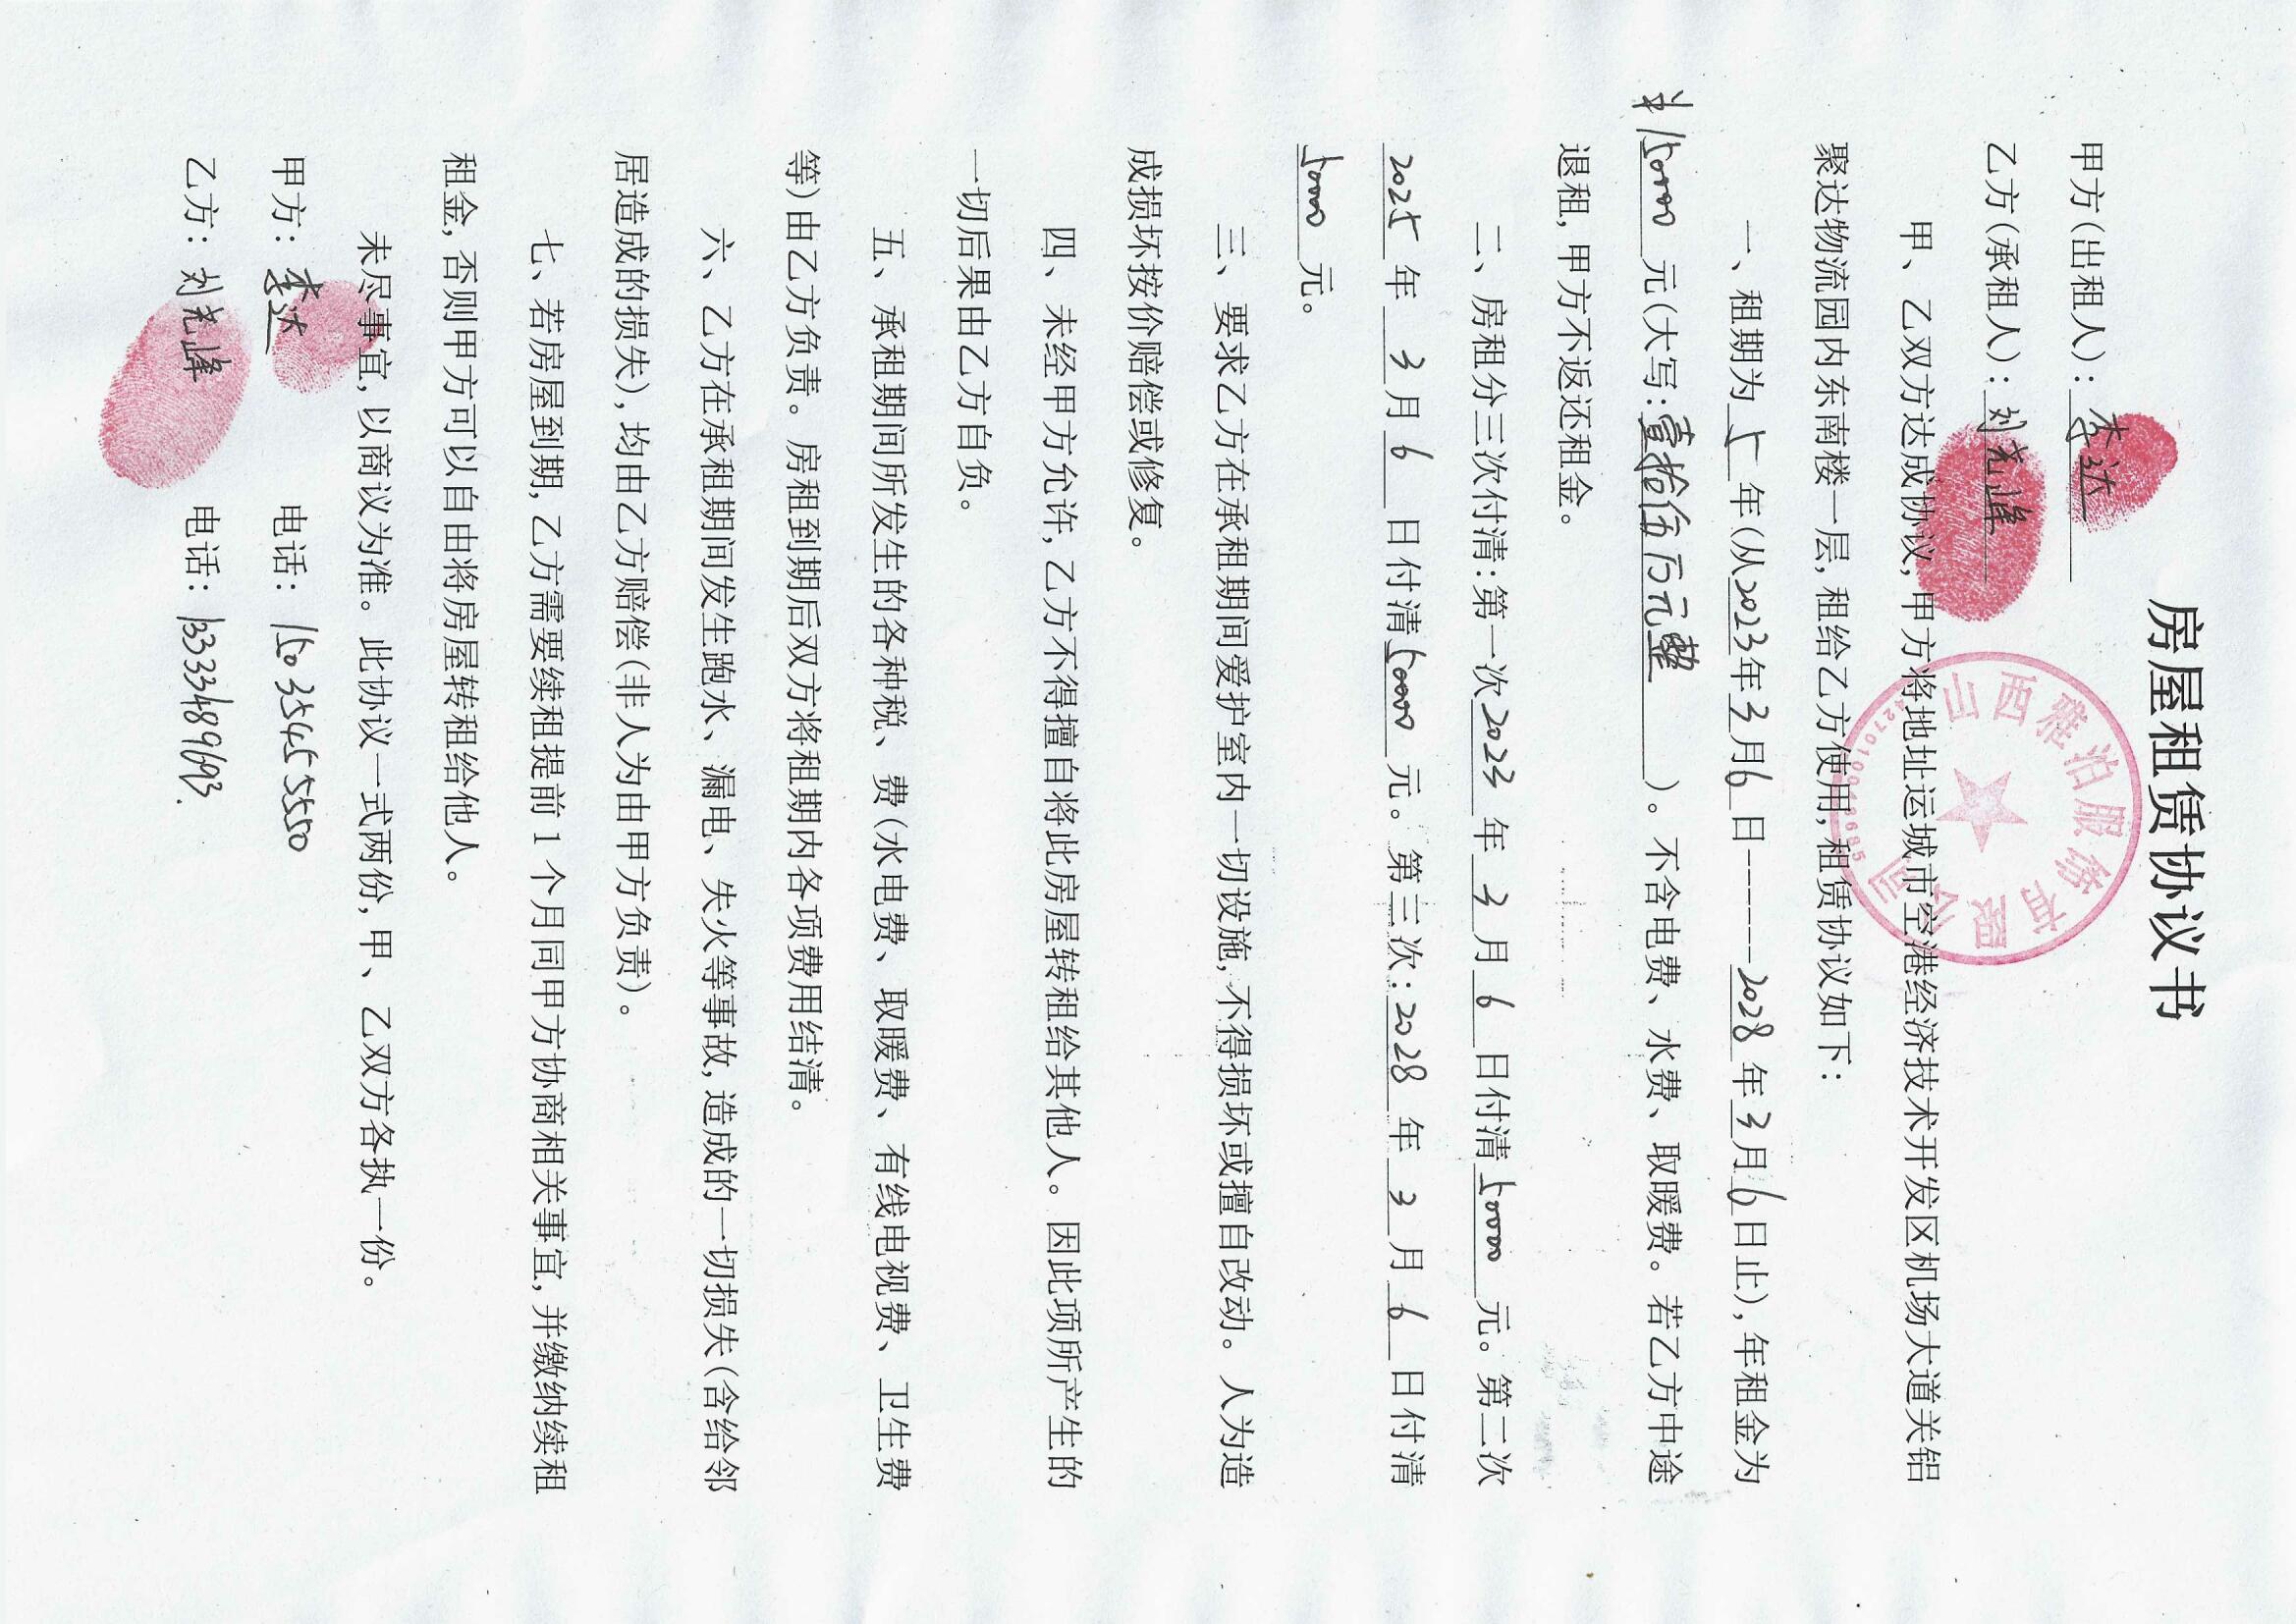 房屋租赁协议书
甲方(出租人):李达
乙方(承租人):刘尧峰
山西雅泊服饰有限公司
甲、乙双方达成协议,甲方将地址运城市空港经济技术开发区机场大道关铝
聚达物流园内东南楼一层,租给乙方使用,租赁协议如下:
一、租期为5年(从2023年3月6日------2028年3月6日止),年租金为
¥150000元(大写:壹拾伍万元整)。不含电费、水费、取暖费。若乙方中途
退租,甲方不返还租金。
二、房租分三次付清:第一次2023年3月6日付清50000元。第二次
2025年3月6日付清50000元。第三次:2028年3月6日付清
50000元。
三、要求乙方在承租期间爱护室内一切设施,不得损坏或擅自改动。人为造
成损坏按价赔偿或修复。
四、未经甲方允许,乙方不得擅自将此房屋转租给其他人。因此项所产生的
一切后果由乙方自负。
五、承租期间所发生的各种税、费(水电费、取暖费、有线电视费、卫生费
等)由乙方负责。房租到期后双方将租期内各项费用结清。
六、乙方在承租期间发生跑水、漏电、失火等事故,造成的一切损失(含给邻
居造成的损失),均由乙方赔偿(非人为由甲方负责)。
七、若房屋到期,乙方需要续租提前1个月同甲方协商相关事宜,并缴纳续租
租金,否则甲方可以自由将房屋转租给他人。
未尽事宜,以商议为准。此协议一式两份,甲、乙双方各执一份。
甲方:李达 电话:15035455550
乙方:刘尧峰 电话:13333489693.